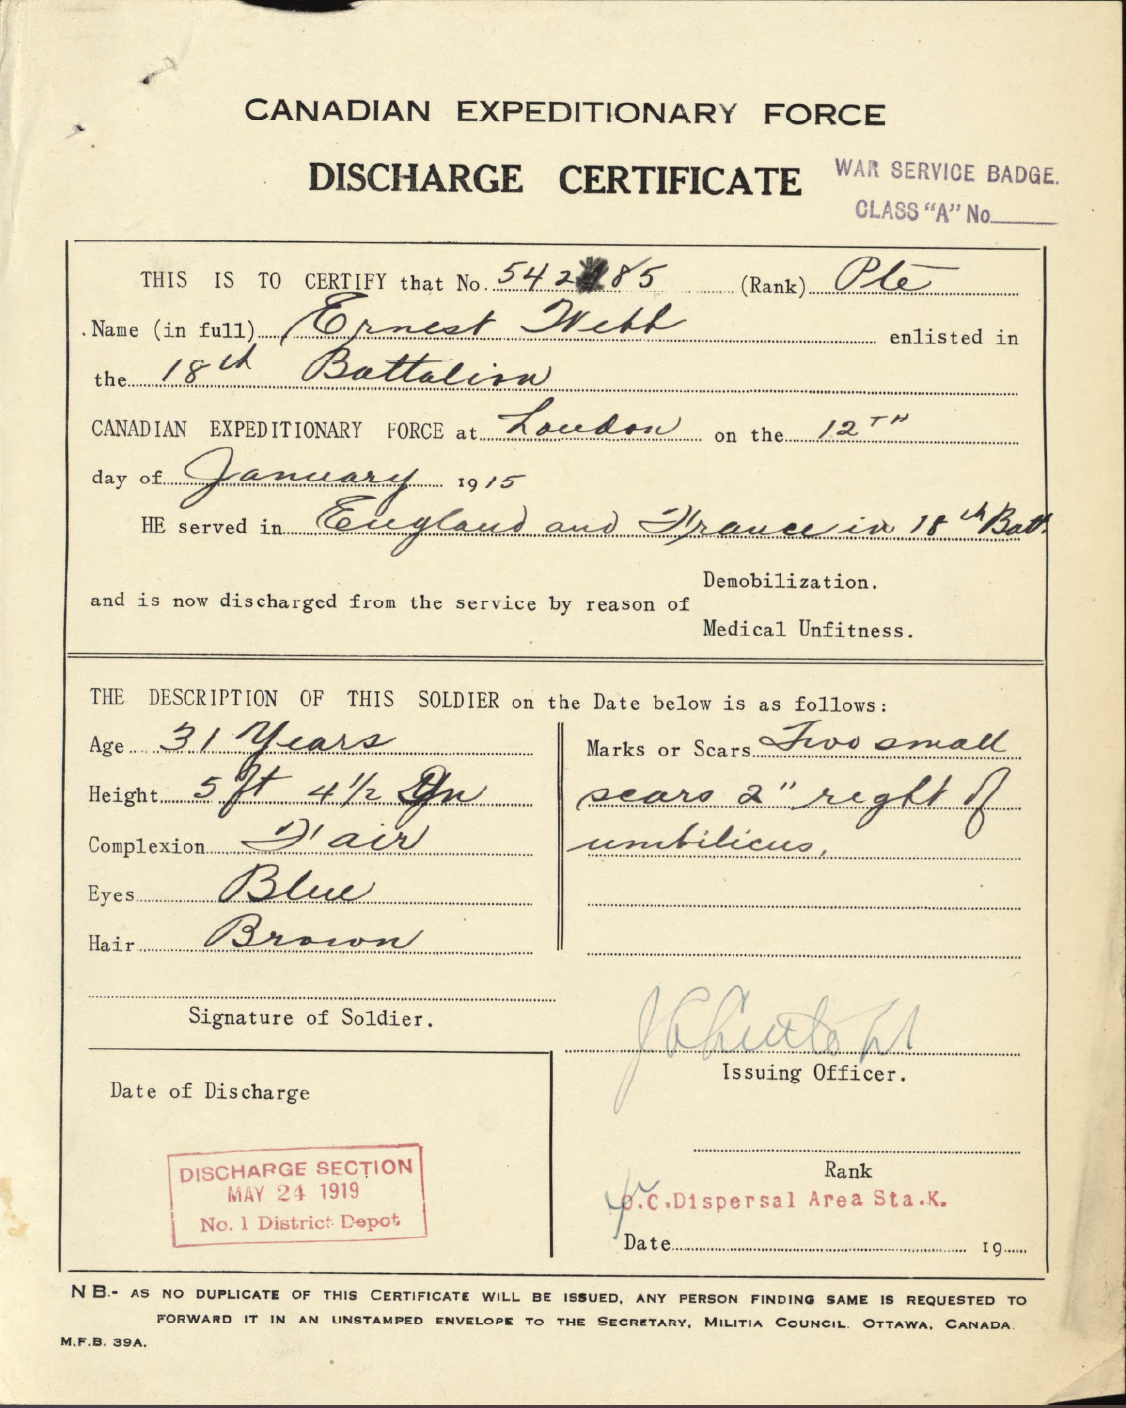 CANADIAN EXPEDITIONARY FORCE
DISCHARGE CERTIFICATE
WAR SERVICE BADGE.
CLASS "A" No
THIS IS TO CERTIFY that No. 542 85 (Rank) Pte
Name (in full) Ernest Webb enlisted in
the 18th Battalion
CANADIAN EXPEDITIONARY FORCE at London on the 12TH
day of January 1915
HE served in England and France in 18th Batt.
and is now discharged from the service by reason of
Demobilization.
Medical Unfitness.
THE DESCRIPTION OF THIS SOLDIER on the Date below is as follows:
Age 31 Years
Height 5 ft 4 1/2 In
Complexion Fair
Eyes Blue
Hair Brown
Marks or Scars Two small
scars 2" right of
umbilicus.
Signature of Soldier.
Issuing Officer.
Date of Discharge
DISCHARGE SECTION
MAY 24 1919
No. 1 District Depot
Rank
O.C. Dispersal Area Sta.K.
Date 19
NB.- AS NO DUPLICATE OF THIS CERTIFICATE WILL BE ISSUED, ANY PERSON FINDING SAME IS REQUESTED TO
FORWARD IT IN AN UNSTAMPED ENVELOPE TO THE SECRETARY, MILITIA COUNCIL. OTTAWA, CANADA.
M.F.B. 39A.